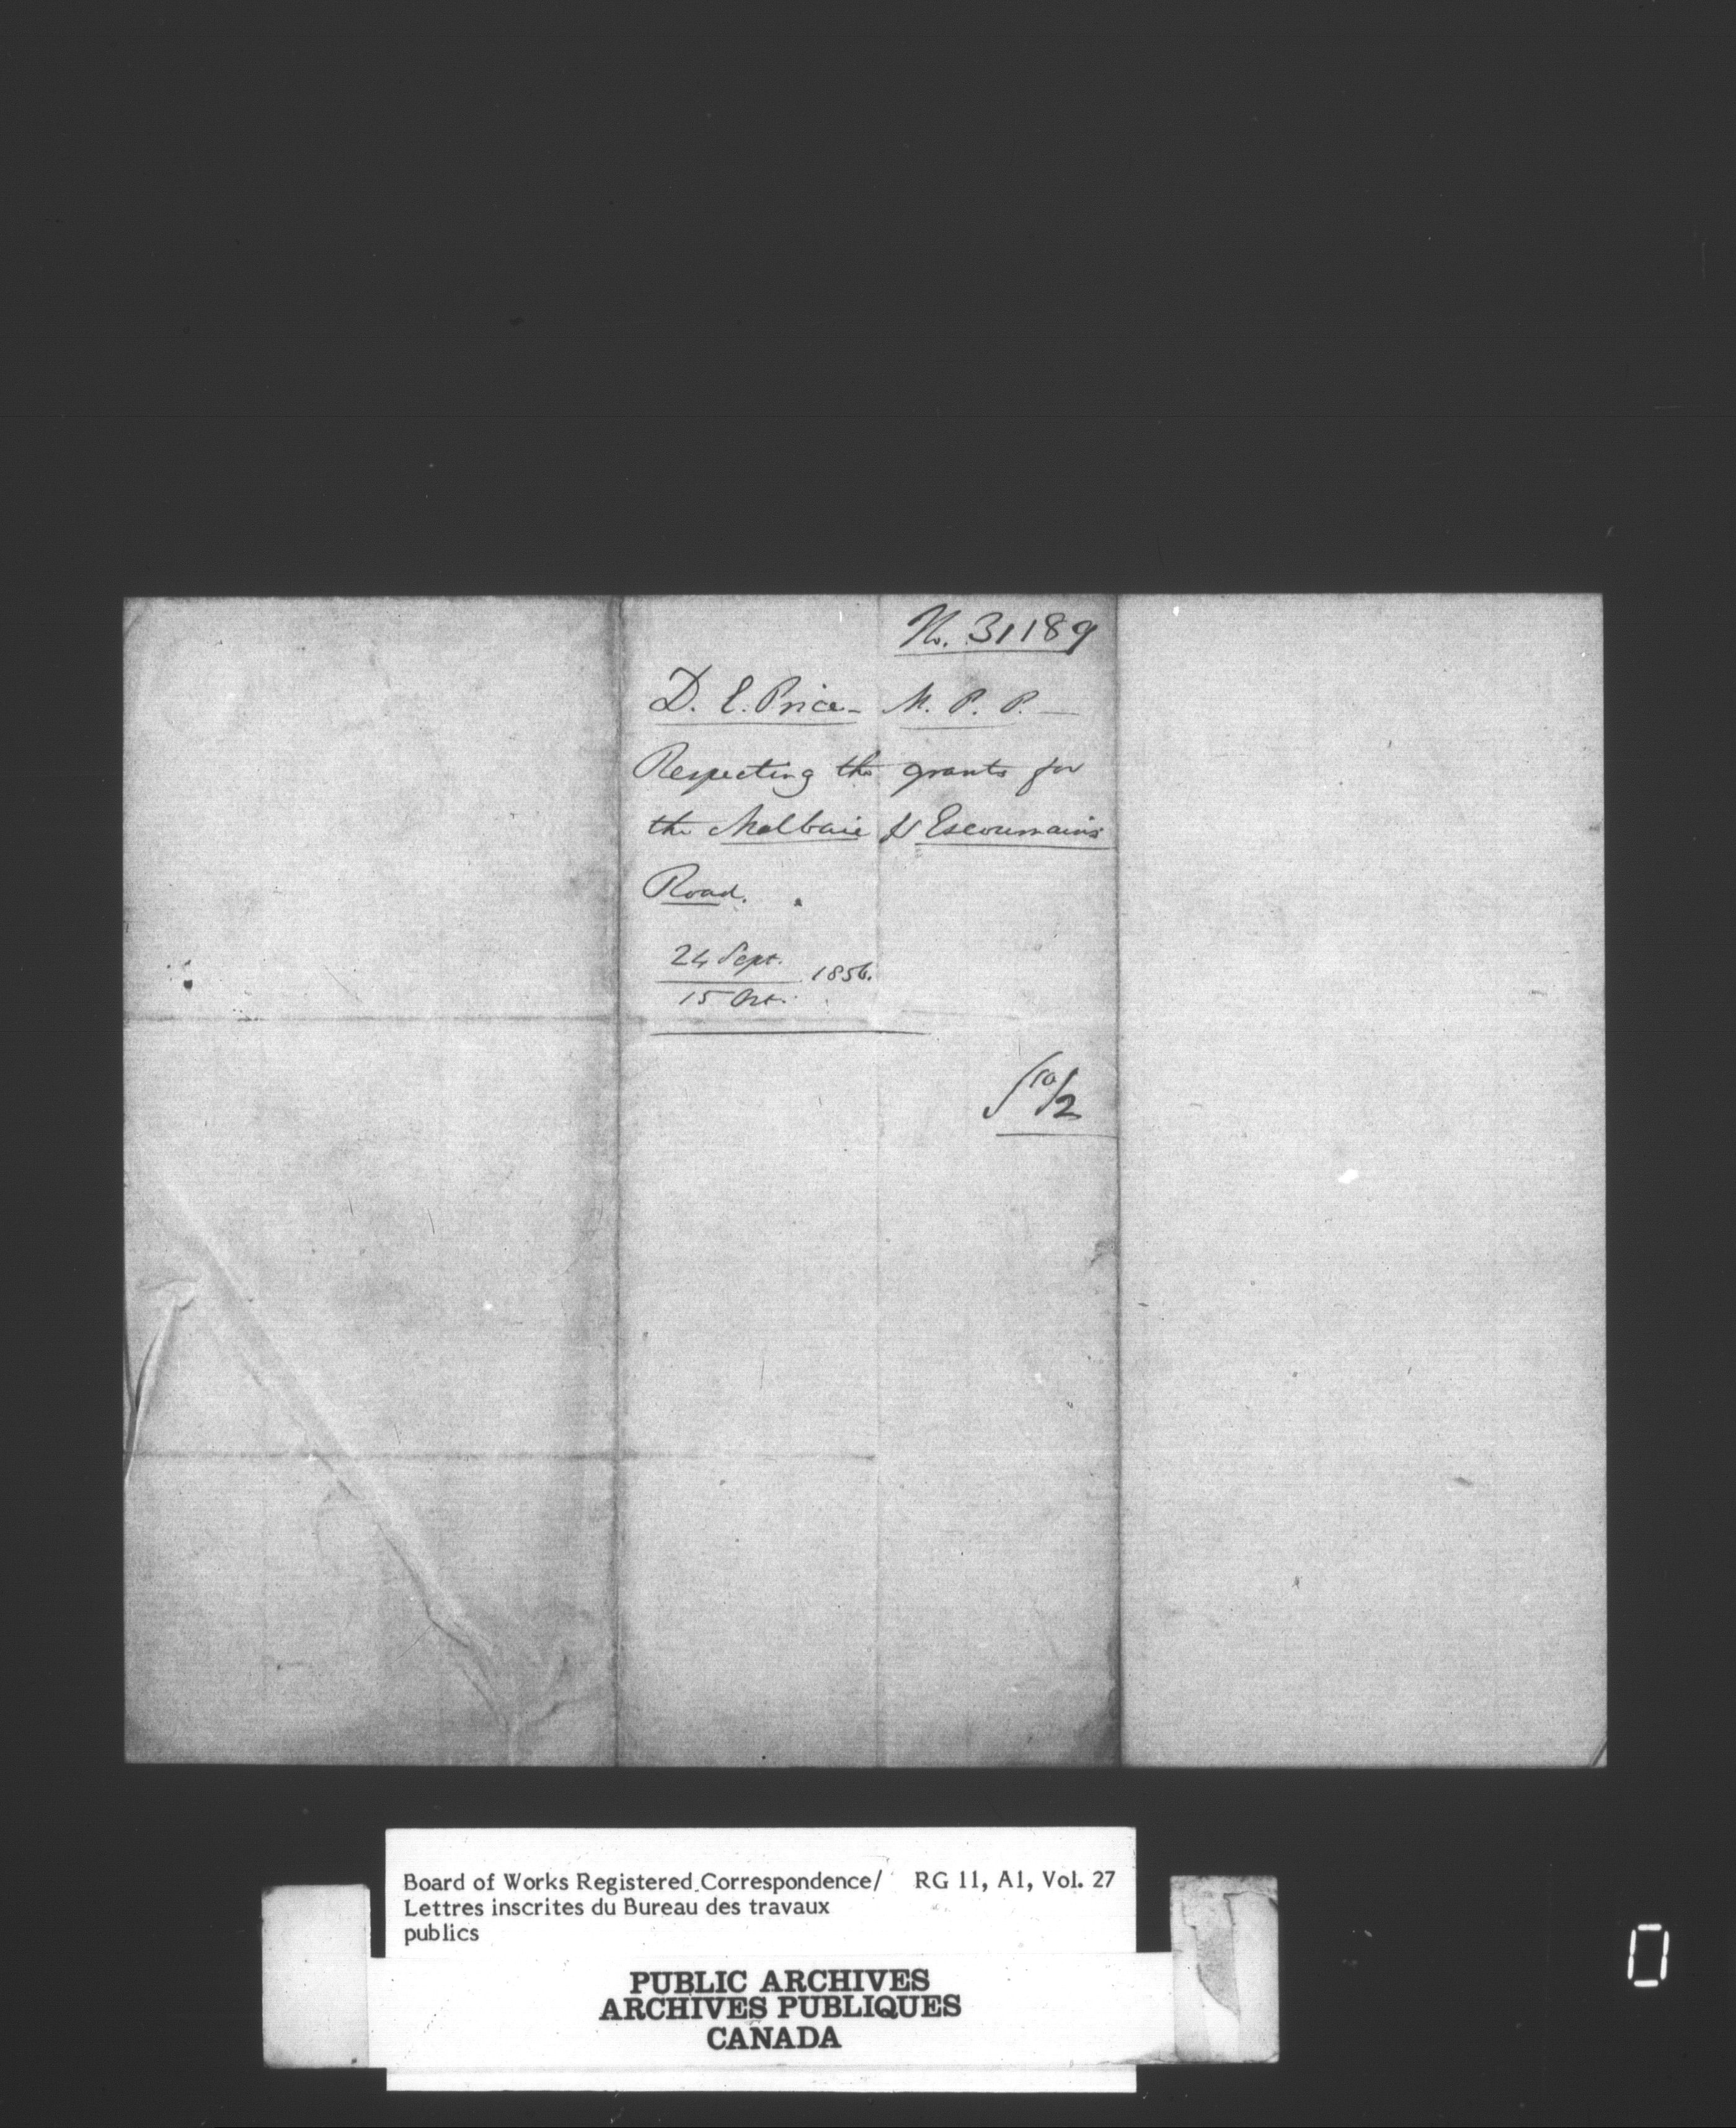 No. 31189
D. E. Price - M. P. P. -
Respecting the grants for
the Malbaie & Escoumains
Road.
24 Sept.
1856.
15 Oct.
10/2
Board of Works Registered Correspondence/ RG 11, A1, Vol. 27
Lettres inscrites du Bureau des travaux
publics
PUBLIC ARCHIVES
ARCHIVES PUBLIQUES
CANADA
0